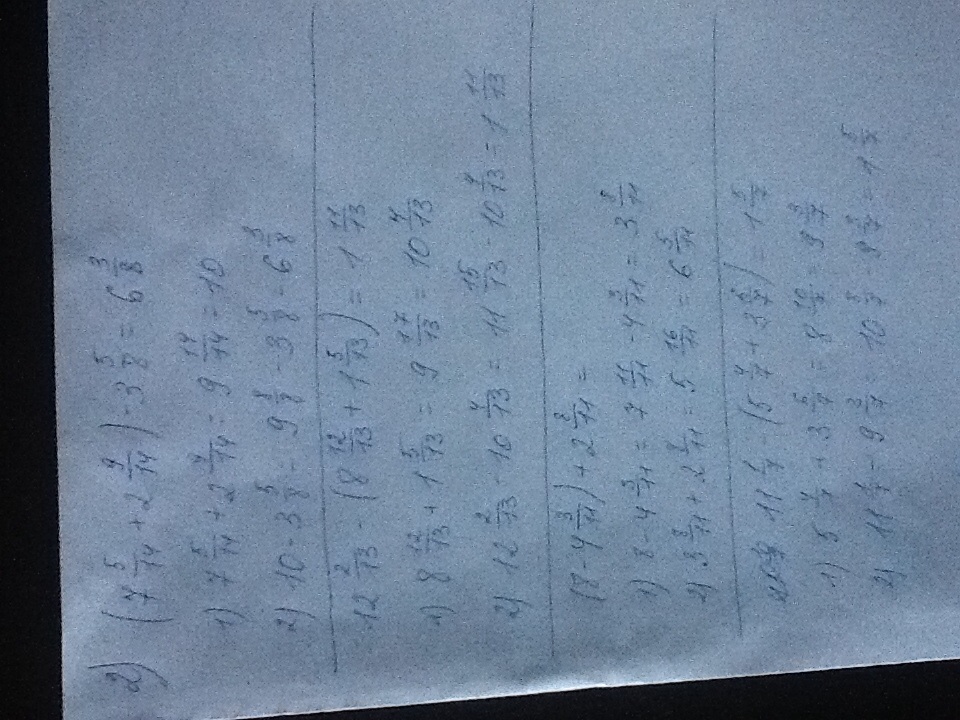 2) (7 5/14 + 2 9/14) - 3 5/8 = 6 3/8
1) 7 5/14 + 2 9/14 = 9 14/14 = 10
2) 10 - 3 5/8 = 9 8/8 - 3 5/8 = 6 3/8
12 2/13 - (8 12/13 + 1 5/13) = 1 11/13
1) 8 12/13 + 1 5/13 = 9 17/13 = 10 4/13
2) 12 2/13 - 10 4/13 = 11 15/13 - 10 4/13 = 1 11/13
(8 - 4 3/11) + 2 8/11 =
1) 8 - 4 3/11 = 7 11/11 - 4 3/11 = 3 8/11
2) 3 8/11 + 2 8/11 = 5 16/11 = 6 5/11
11 1/7 - (5 4/7 + 3 6/7) = 1 5/7
1) 5 4/7 + 3 6/7 = 8 10/7 = 9 3/7
2) 11 1/7 - 9 3/7 = 10 8/7 - 9 3/7 = 1 5/7